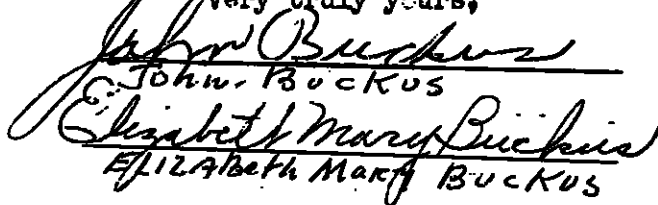 Very truly yours,
John Buckus
John. BUCKUS
Elizabeth Mary Buckus
ELIZABeth MARY BUCKUS